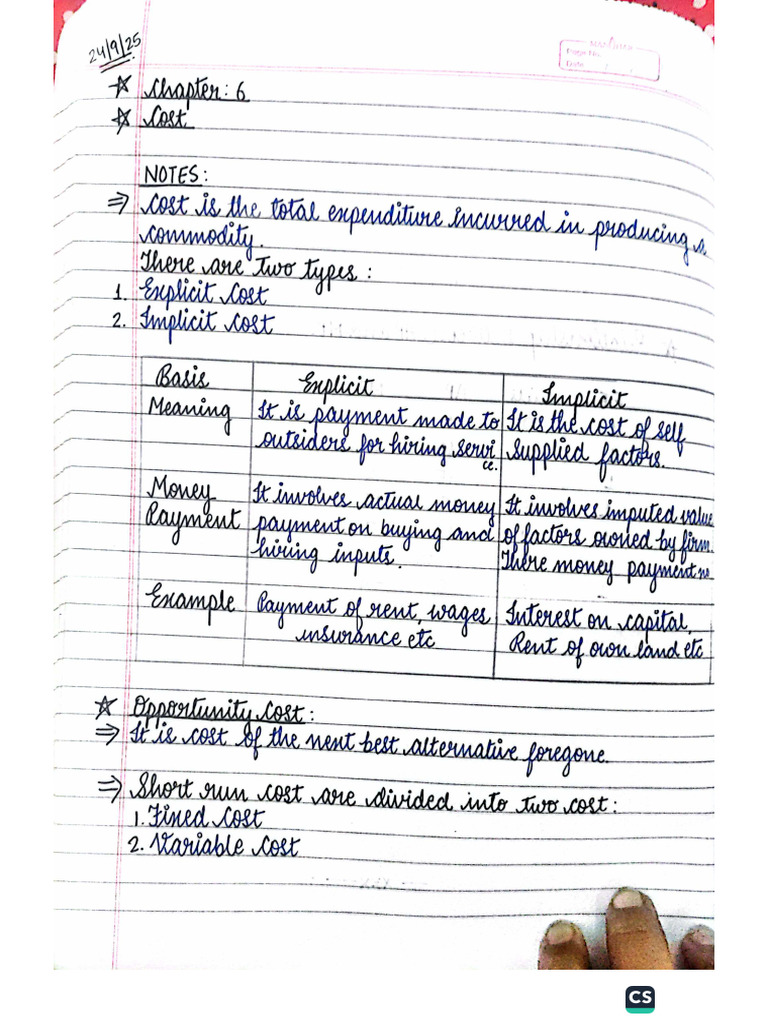 24/9/25
Page No.
Date
☆ Chapter: 6
☆ Cost
NOTES:
⇒ Cost is the total expenditure incurred in producing a
commodity.
There are two types:
1. Explicit Cost
2. Implicit cost
Basis Explicit Implicit
Meaning It is payment made to It is the cost of self
outsiders for hiring servi supplied factors.
ce.
Money It involves actual money It involves imputed value
Payment payment on buying and of factors owned by firm.
hiring inputs. There money payment
Example Payment of rent, wages Interest on capital,
insurance etc Rent of own land etc
☆ Opportunity cost:
⇒ It is cost of the next best alternative foregone.
⇒ Short run cost are divided into two cost:
1. Fixed cost
2. Variable cost
CS